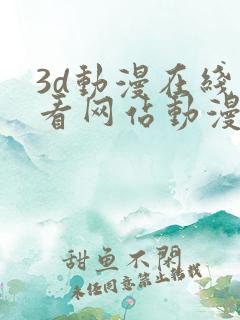 3d動漫在线
看网站動漫
甜鱼不閑
未经同意禁止转载